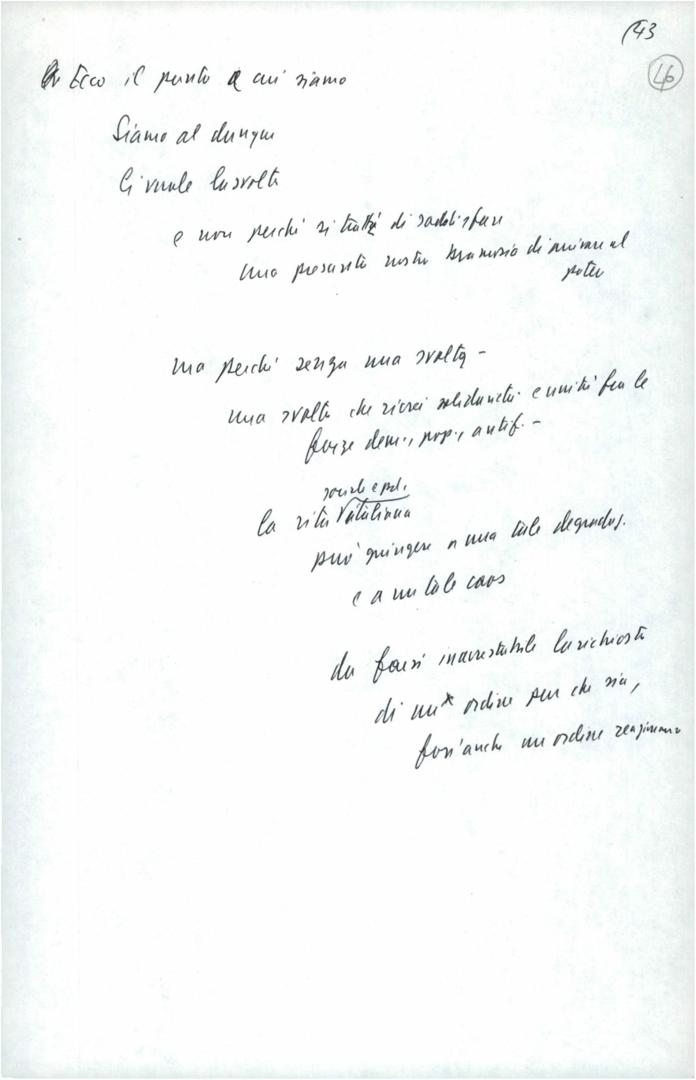 143
46
Ecco il punto a cui siamo
Siamo al dunque
Ci vuole la svolta
e non perché si tratti di soddisfare
una presunta nostra bramosia di arrivare al
potere
ma perché senza una svolta -
una svolta che ricrei solidarietà e unità fra le
forze dem., pop., antif. -
sociale e pol.
la vita italiana
può giungere a una tale degradaz.
e a un tale caos
da farsi inarrestabile la richiesta
di un ordine pur che sia,
foss'anche un ordine reazionario